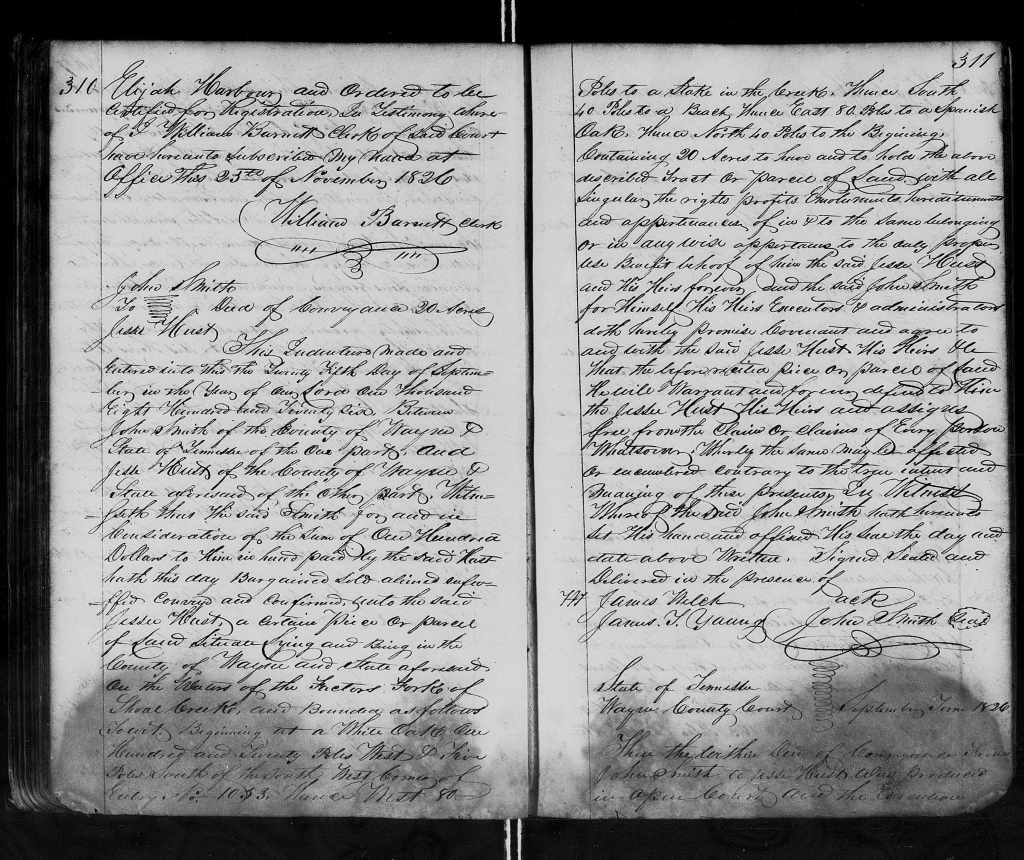 310
Elijah Harbour and Ordered to be
Certified for Registration. In Testimony where
of I William Barnett Clerk of Said Court
have hereunto Subscribed my name at
Office this 25th of November 1826
William Barnett Clerk
John Smith
To Deed of Conveyance 20 Acres
Jesse Hust
This Indenture made and
Entered into this the Twenty Day of Septem-
ber in the Year of our Lord One Thousand
Eight Hundred and Twenty Six Between
John Smith of the County of Wayne &
State of Tennessee of the One part, and
Jesse Hust of the County of Wayne &
State aforesaid of the other part. Witne-
seth that the said Smith for and in
Consideration of the Sum of One Hundred
Dollars to Him in hand paid by the said Hust
hath this day Bargained Sold aliened enfeo-
ffed Conveyed and Confirmed, unto the said
Jesse Hust, a Certain piece Or parcel
of Land Situate Lying and Being in the
County of Wayne and State aforesaid
On the Waters of the Factors Fork of
Shoal Creek, and Bounded as follows
Towit, Beginning at a White Oak One
Hundred and Twenty Poles West & Five
Poles South of the South West Corner of
Entry No. Thence West 80
311
Poles to a Stake in the Creek. Thence South
40 Poles to a Beach, Thence East 80 Poles to a Spanish
Oak. Thence North 40 Poles to the Begining,
Containing 20 Acres to have and to hold the above
discribed Tract Or Parcel of Land with all
Singular the rights profits Emoluments hereditaments
and appertinances of in & to the same belonging
Or in any wise appertains to the only proper
Use Benefit behoof of him the said Jesse Hust
and His Heirs forever, and the said John Smith
for Himself His Heirs Executors & administrators
doth hereby promise Covenant and agree to
and with the said Jesse Hust His Heirs &c
That the before recited piece or parcel of Land
He will Warrant and forever defend to Him
the Jesse Hust His Heirs and assigns
free from the Claim Or claims of Every person
Whatsoever. Whereby the same may be affected
Or encumbered contrary to the true intent and
meaning of these presents, In Witness
Whereof the said John Smith hath hereunto
set His hand and affixed His seal the day and
date above Written. Signed Seald and
Delivered in the presence of
James Welch ack
James. T. Young John Smith Seal
State of Tennessee
Wayne County Court September Term 1826
Then the within Deed of Conveyance from
John Smith to Jesse Hust was produced
in Open Court and the Execution